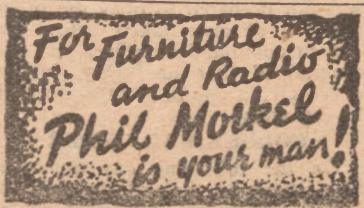 For Furniture
and Radio
Phil Morkel
is your man!